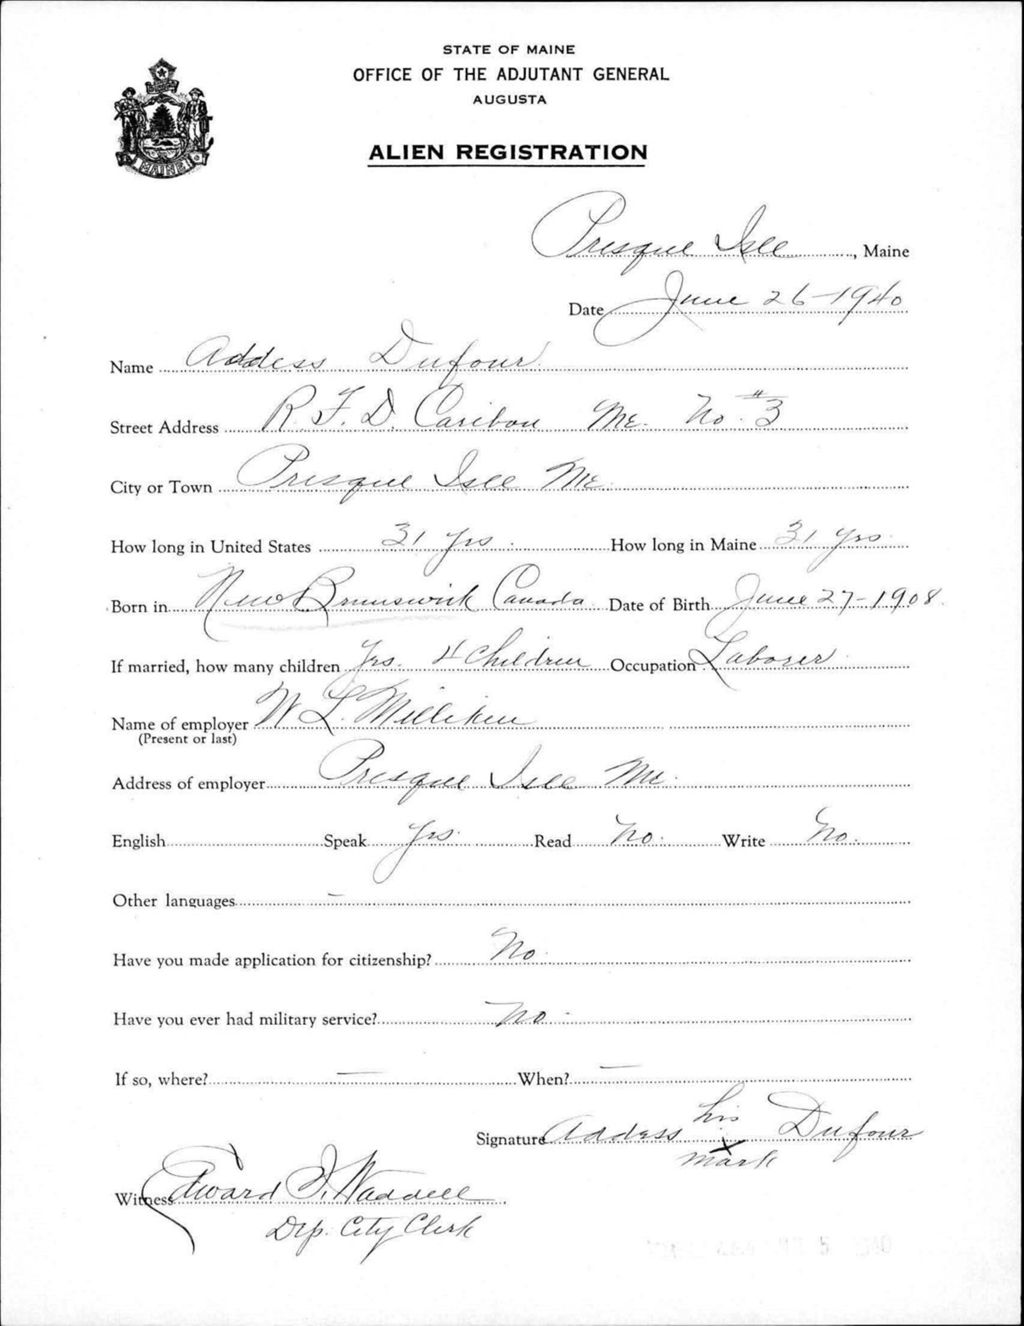 STATE OF MAINE
OFFICE OF THE ADJUTANT GENERAL
AUGUSTA
ALIEN REGISTRATION
MAINE
Presque Isle, Maine
Date June 26-1940
Name Addess Dufour
Street Address R.F.D. Caribou Me. No. #3
City or Town Presque Isle Me.
How long in United States 31 yrs. How long in Maine 31 yrs.
Born in New Brunswick Canada Date of Birth June 27-1908.
If married, how many children Yes. 4 Children Occupation Laborer
Name of employer W L. Milliken
(Present or last)
Address of employer Presque Isle Me.
English Speak Yes. Read No. Write No.
Other languages —
Have you made application for citizenship? No.
Have you ever had military service? No -
If so, where? — When? —
his
Signature Addess X Dufour
mark
Witness Edward J. Waddell
Dep. City Clerk